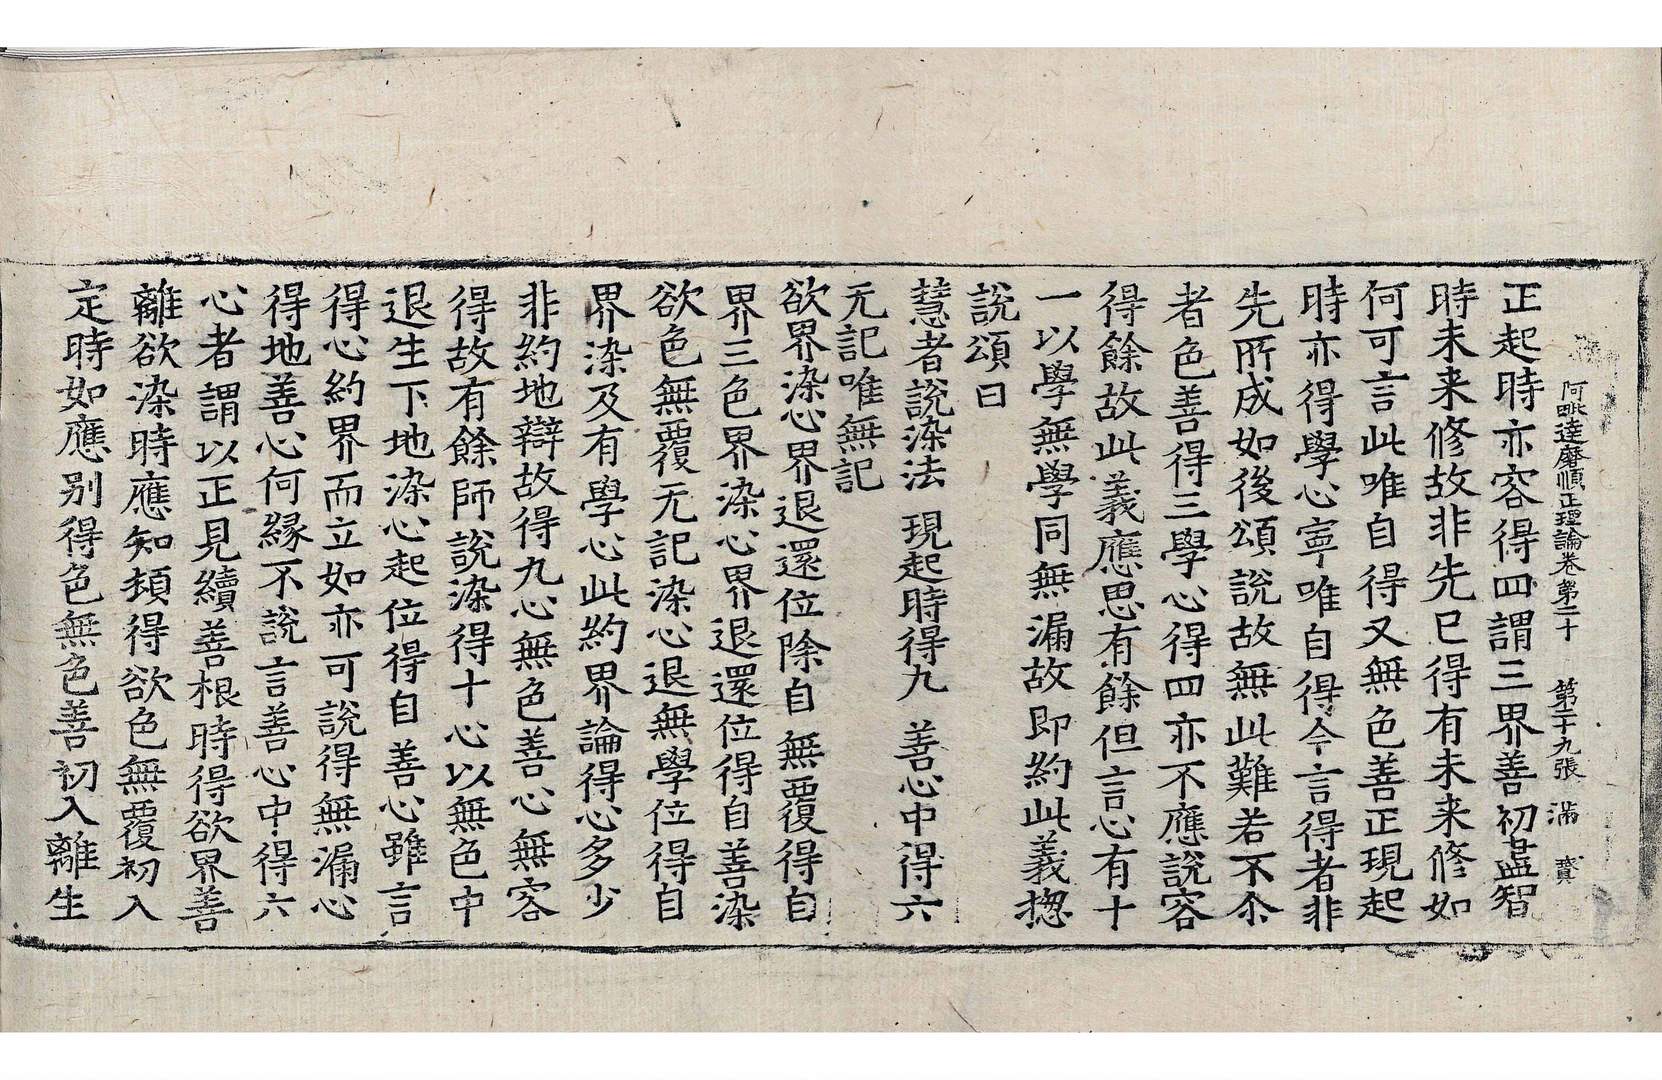 阿毗達磨順正理論卷第二十　第二十九張　滿　寶
正起時亦容得四謂三界善初盡智
時未来修故非先已得有未来修如
何可言此唯自得又無色善正現起
時亦得學心寧唯自得今言得者非
先所成如後頌說故無此難若不尒
者色善得三學心得四亦不應說容
得餘故此義應思有餘但言心有十
一以學無學同無漏故即約此義揔
說頌曰
慧者說染法　現起時得九　善心中得六
无記唯無記
欲界染心界退還位除自無覆得自
界三色界染心界退還位得自善染
欲色無覆无記染心退無學位得自
界染及有學心此約界論得心多少
非約地辯故得九心無色善心無容
得故有餘師說染得十心以無色中
退生下地染心起位得自善心雖言
得心約界而立如亦可說得無漏心
得地善心何縁不說言善心中得六
心者謂以正見續善根時得欲界善
離欲染時應知頓得欲色無覆初入
定時如應别得色無色善初入離生